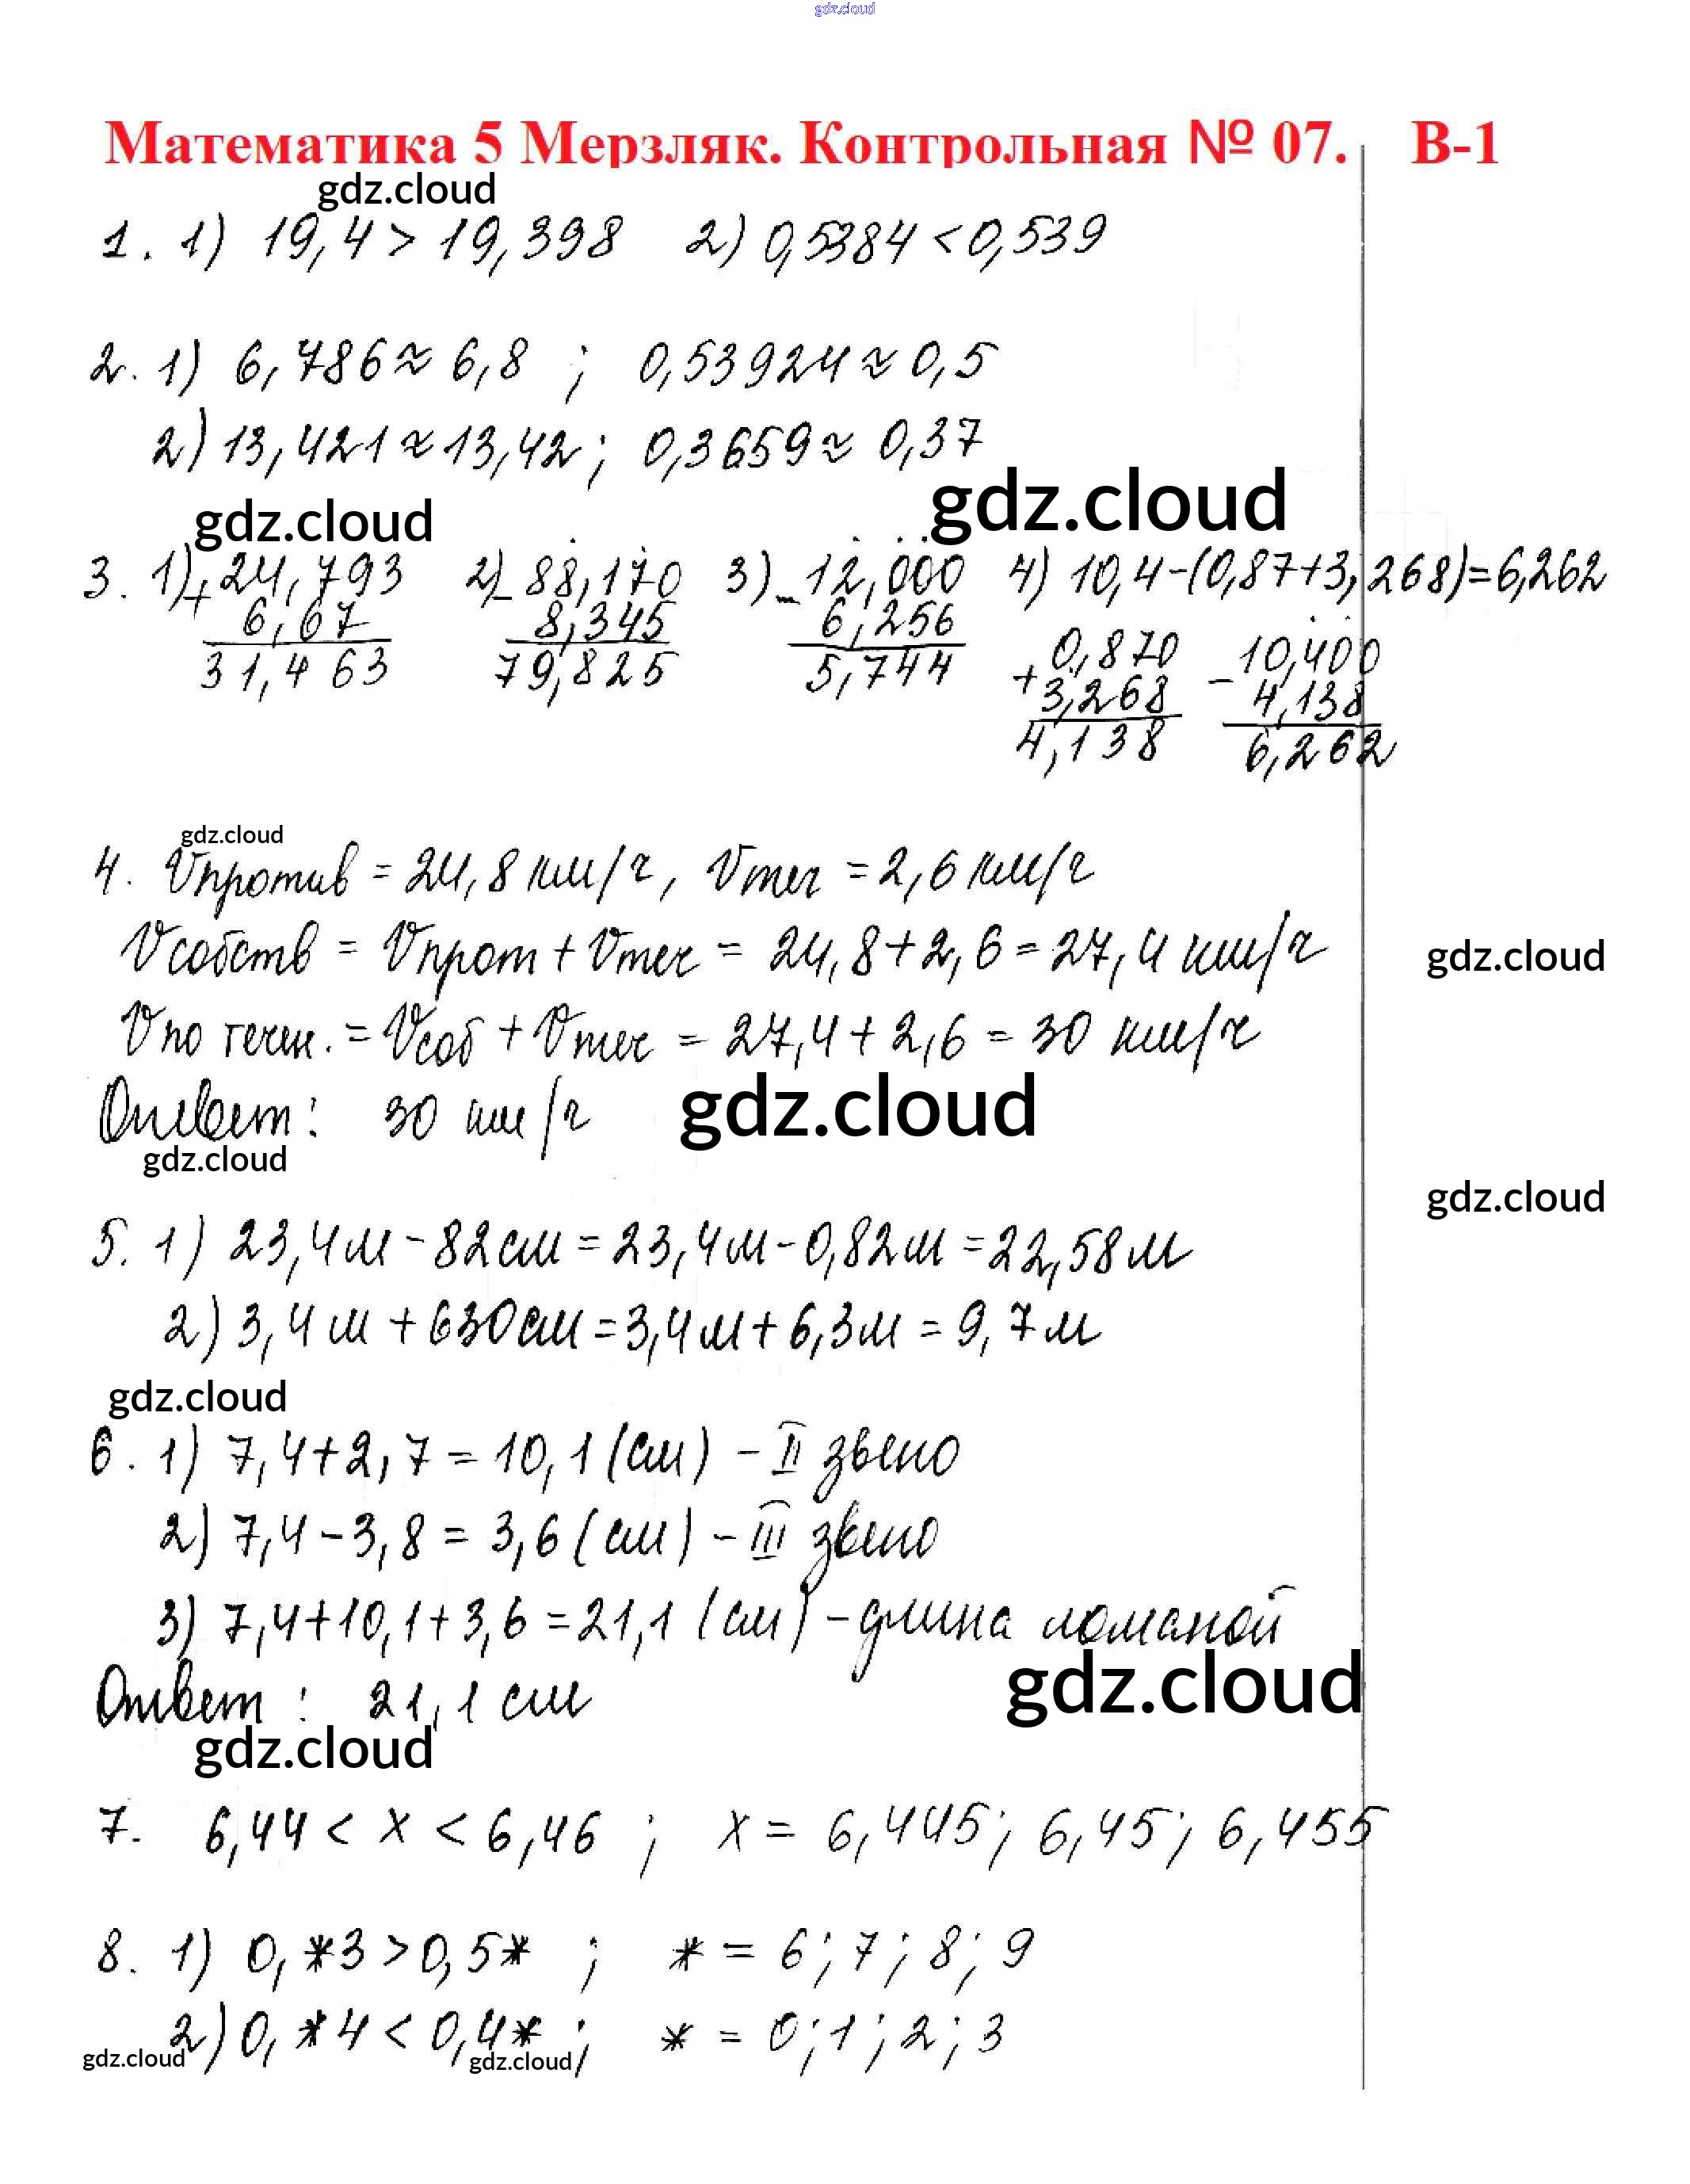 gdz.cloud
Математика 5 Мерзляк. Контрольная № 07. В-1
gdz.cloud
1. 1) 19,4 > 19,398 2) 0,5384 < 0,539
2. 1) 6,786 ≈ 6,8 ; 0,53924 ≈ 0,5
2) 13,421 ≈ 13,42 ; 0,3659 ≈ 0,37
gdz.cloud
gdz.cloud
3. 1) + 24,793 2) - 88,170 3) - 12,000 4) 10,4-(0,87+3,268)=6,262
6,67 8,345 6,256
31,463 79,825 5,744
+ 0,870 - 10,400
3,268 4,138
4,138 6,262
gdz.cloud
4. Vпротив = 24,8 км/ч, Vтеч = 2,6 км/ч
Vсобств = Vпрот + Vтеч = 24,8+2,6=27,4 км/ч
gdz.cloud
Vпо течен. = Vсоб + Vтеч = 27,4+2,6 = 30 км/ч
Ответ: 30 км/ч
gdz.cloud
gdz.cloud
gdz.cloud
5. 1) 23,4м - 82см = 23,4м - 0,82м = 22,58м
2) 3,4м + 630см = 3,4м + 6,3м = 9,7м
gdz.cloud
6. 1) 7,4+2,7 = 10,1 (см) - II звено
2) 7,4-3,8 = 3,6 (см) - III звено
3) 7,4+10,1+3,6=21,1 (см) - длина ломаной
Ответ : 21,1 см
gdz.cloud
gdz.cloud
7. 6,44 < x < 6,46 ; x = 6,445; 6,45; 6,455
8. 1) 0,*3 > 0,5* ; * = 6; 7; 8; 9
2) 0,*4 < 0,4* ; * = 0; 1; 2; 3
gdz.cloud
gdz.cloud